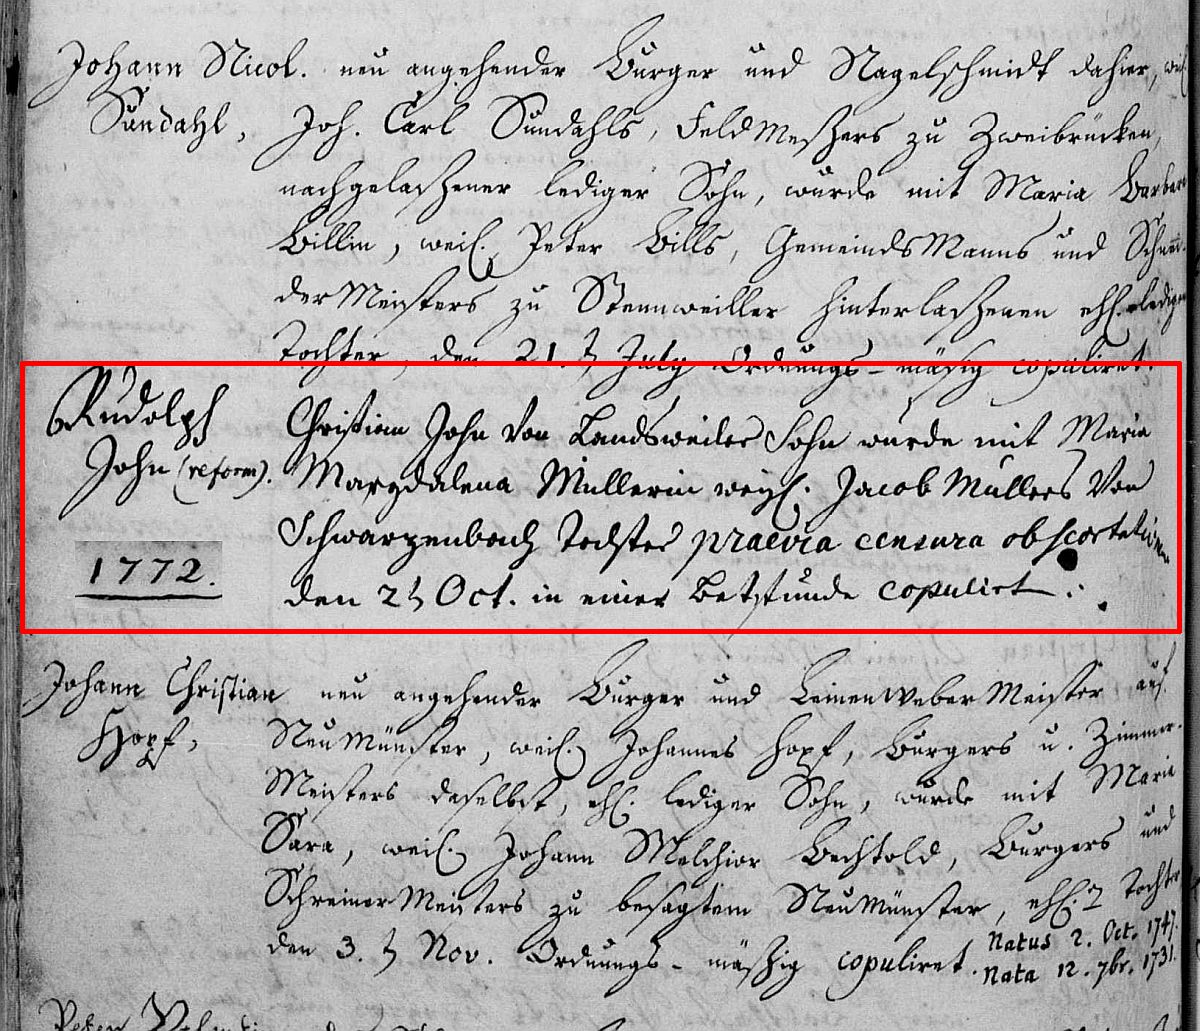 Johann Nicol. neu angehender Burger und Nagelschmidt dahier,
Sundahl, Joh. Carl Sundahls, FeldMeßers zu Zweibrücken,
nachgelaßener lediger Sohn, wurde mit Maria Barbara
Billin, weil. Peter Bills, GemeindsManns und Schnei-
derMeisters zu Stennweiller hinterlaßenen ehl. ledigen
Tochter, den 21. July Ordnungs-mäsig copuliret.
Rudolph Christian John von Landsweiler Sohn wurde mit Maria
John (reform). Margdalena Müllerin weyl. Jacob Müllers von
Schwarzenbach Tochter praevia censura ob scortationem
1772. den 2t Oct. in einer Betstunde copulirt.
Johann Christian neu angehender Burger und LeinenWeberMeister auf
Hopf, NeuMünster, weil. Johannes Hopf, Burgers u. Zimmer-
Meisters daselbst, ehl. lediger Sohn, wurde mit Maria
Sara, weil. Johann Melchior Bechtold, Burgers und
SchreinerMeisters zu besagtem NeuMünster, ehl. Tochter
den 3. Nov. Ordnungs-mäßig copuliret. Natus 2. Oct. 1747.
Nata 12. 7br. 1731.
Peter